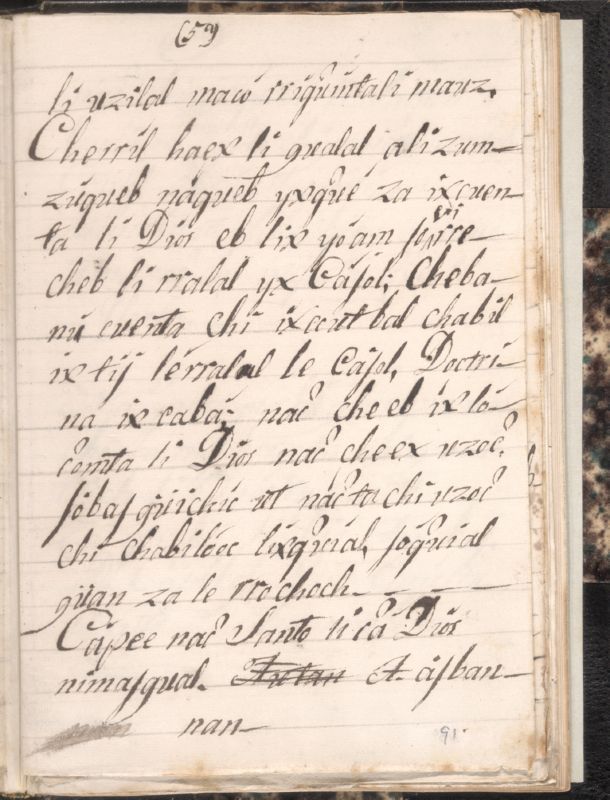 (59)
li uzilal maco rriquintali mauz.
Cherril haex li gualal alizum-
zuqueb naqueb yxq̃ue za ixcuen-
ta li Dios eb lix yoam
cheb li rralal yx Cajol; Cheba-
nu cuenta chi ixcutbal chabil
ix tij lerralal le Cajol, Doctri-
na ix caba; nac̃ cheeb ix lo-
c̃omta li Dios nac̃ cheex uzoc̃.
jobaj guichic ut nac̃ta chi uzoc̃
chi chabiloec lixq̃uial, joq̃uial
guan za le rrochoch.
Capee nac̃ Santo li ca Dios
nimajgual. Autan A. cajban-
nan-
91.